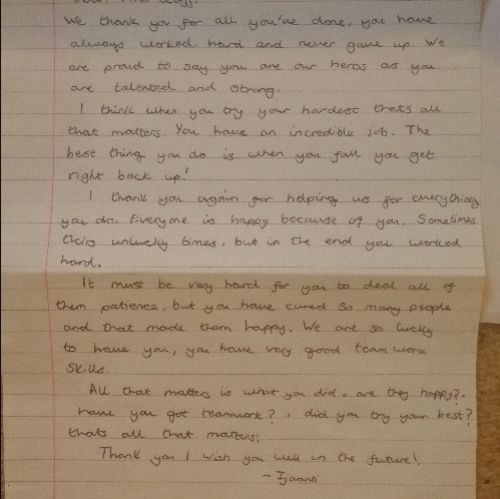 We thank you for all you've done, you have
always worked hard and never gave up. We
are proud to say you are our heros as you
are talented and strong.
I think when you try your hardest thats all
that matters. You have an incredible job. The
best thing you do is when you fall you get
right back up!
I thank you again for helping us for everything
you do. Everyone is happy because of you. Sometimes
theirs unlucky times, but in the end you worked
hard.
It must be very hard for you to deal all of
them patience, but you have cured so many people
and that made them happy. We are so lucky
to have you, you have very good team work
skills.
All that matters is what you did. are they happy?,
have you got teamwork?, did you try your best?
thats all that matters!
Thank you I wish you well in the future!